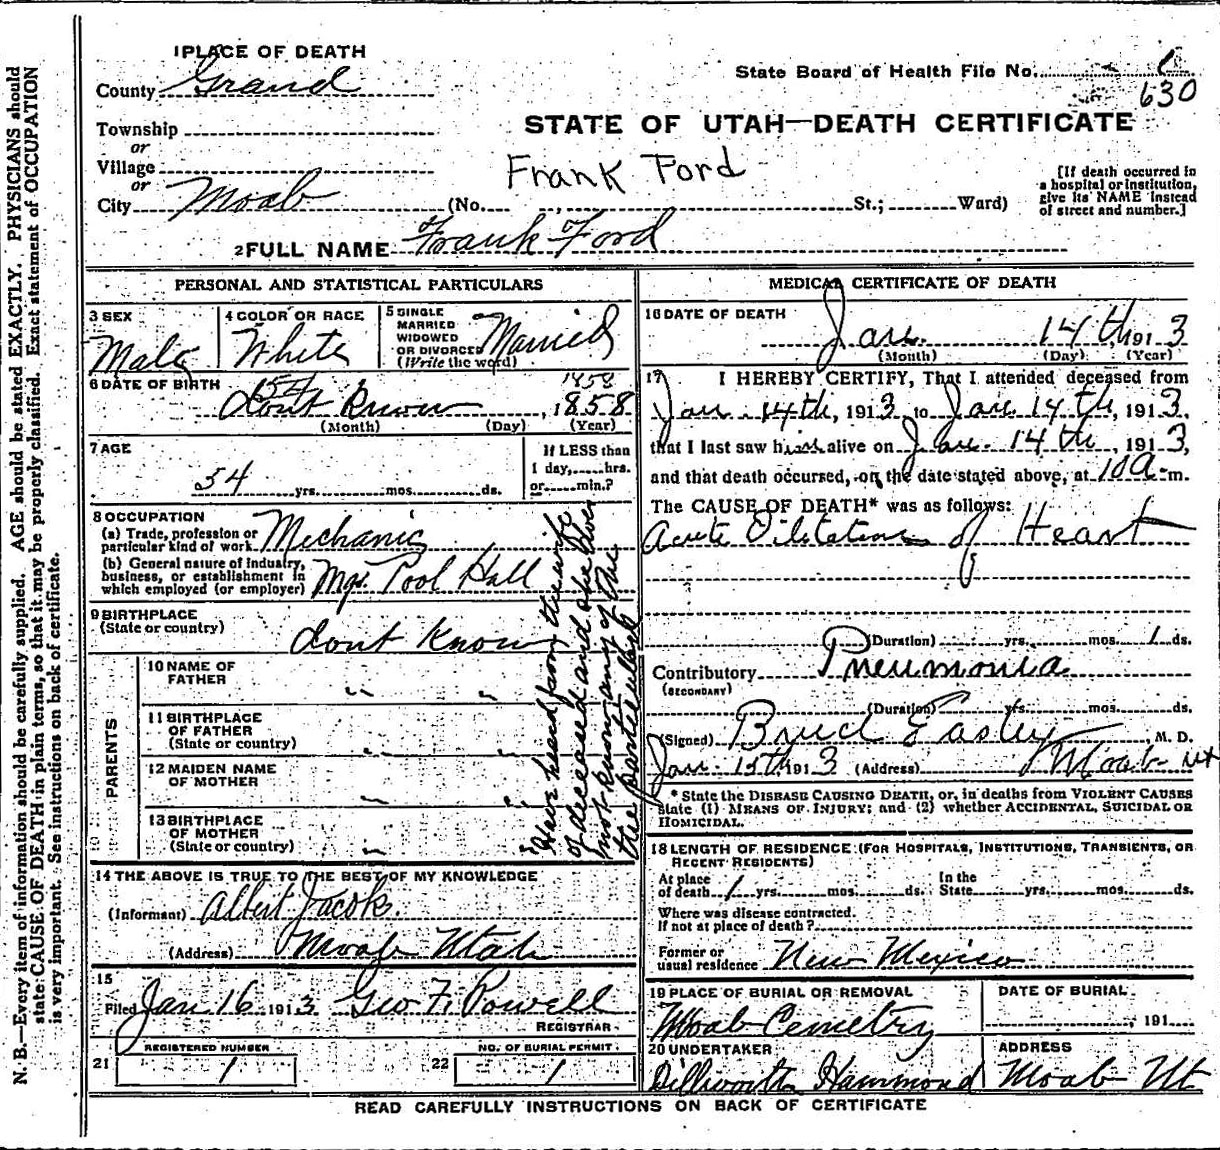 1 PLACE OF DEATH
County Grand
State Board of Health File No. 630
Township
or
Village
or
City Moab (No. St.; Ward)
STATE OF UTAH—DEATH CERTIFICATE
Frank Ford
[If death occurred in
a hospital or institution,
give its NAME instead
of street and number.]
2 FULL NAME Frank Ford
PERSONAL AND STATISTICAL PARTICULARS
3 SEX
Male
4 COLOR OR RACE
White
5 SINGLE
MARRIED
WIDOWED
OR DIVORCED
(Write the word)
Married
6 DATE OF BIRTH
1858
dont know, 1858
(Month) (Day) (Year)
7 AGE
54 yrs. mos. ds.
If LESS than
1 day, hrs.
or min.?
8 OCCUPATION
(a) Trade, profession or
particular kind of work Mechanic
(b) General nature of industry,
business, or establishment in
which employed (or employer) Mgr. Pool Hall
9 BIRTHPLACE
(State or country) dont know
PARENTS
10 NAME OF
FATHER " "
11 BIRTHPLACE
OF FATHER
(State or country) " "
12 MAIDEN NAME
OF MOTHER " "
13 BIRTHPLACE
OF MOTHER
(State or country) "
Have heard from the wife
of deceased and she does
not know any of the
particulars
14 THE ABOVE IS TRUE TO THE BEST OF MY KNOWLEDGE
(Informant) Albert Jacobs.
(Address) Moab Utah
15
Filed Jan 16 1913 Geo F. Powell
REGISTRAR
21 REGISTERED NUMBER
1
22 NO. OF BURIAL PERMIT
1
MEDICAL CERTIFICATE OF DEATH
16 DATE OF DEATH
Jan. 14th 1913
(Month) (Day) (Year)
17 I HEREBY CERTIFY, That I attended deceased from
Jan. 14th, 1913 to Jan. 14th, 1913,
that I last saw him alive on Jan. 14th, 1913,
and that death occurred, on the date stated above, at 10 a. m.
The CAUSE OF DEATH* was as follows:
Acute Dilatation of Heart
(Duration) yrs. mos. 1 ds.
Contributory Pneumonia
(SECONDARY)
(Duration) yrs. mos. ds.
(Signed) Easley, M. D.
Jan. 15th 1913 (Address) Moab Ut
* State the DISEASE CAUSING DEATH, or, in deaths from VIOLENT CAUSES
state (1) MEANS OF INJURY; and (2) whether ACCIDENTAL, SUICIDAL OR
HOMICIDAL.
18 LENGTH OF RESIDENCE (FOR HOSPITALS, INSTITUTIONS, TRANSIENTS, OR
RECENT RESIDENTS)
At place In the
of death 1 yrs. mos. ds. State yrs. mos. ds.
Where was disease contracted.
If not at place of death?
Former or
usual residence New Mexico
19 PLACE OF BURIAL OR REMOVAL
Moab Cemetry
DATE OF BURIAL
, 191
20 UNDERTAKER
Dillworth Hammond
ADDRESS
Moab Ut
READ CAREFULLY INSTRUCTIONS ON BACK OF CERTIFICATE
N. B.—Every item of information should be carefully supplied. AGE should be stated EXACTLY. PHYSICIANS should
state CAUSE OF DEATH in plain terms, so that it may be properly classified. Exact statement of OCCUPATION
is very important. See instructions on back of certificate.